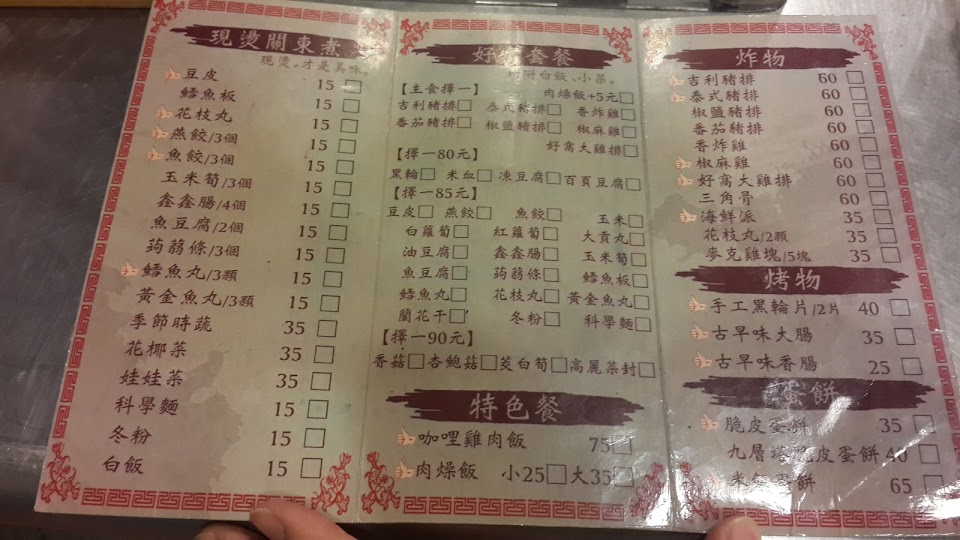 現燙關東煮
現燙、才是美味。
豆皮 15
鱈魚板 15
花枝丸 15
燕餃/3個 15
魚餃/3個 15
玉米筍/3個 15
鑫鑫腸/4個 15
魚豆腐/2個 15
蒟蒻條/3個 15
鱈魚丸/3顆 15
黃金魚丸/3顆 15
季節時蔬 35
花椰菜 35
娃娃菜 35
科學麵 15
冬粉 15
白飯 15
好 套餐
附白飯、小菜。
【主食擇一】 肉燥飯+5元
吉利豬排 泰式豬排 香炸雞
番茄豬排 椒鹽豬排 椒麻雞
好窩大雞排
【擇一80元】
黑輪 米血 凍豆腐 百頁豆腐
【擇一85元】
豆皮 燕餃 魚餃 玉米
白蘿蔔 紅蘿蔔 大貢丸
油豆腐 鑫鑫腸 玉米筍
魚豆腐 蒟蒻條 鱈魚板
鱈魚丸 花枝丸 黃金魚丸
蘭花干 冬粉 科學麵
【擇一90元】
香菇 杏鮑菇 茭白筍 高麗菜封
特色餐
咖哩雞肉飯 75
肉燥飯 小25 大35
炸物
吉利豬排 60
泰式豬排 60
椒鹽豬排 60
番茄豬排 60
香炸雞 60
椒麻雞 60
好窩大雞排 60
三角骨 60
海鮮派 35
花枝丸/2顆 35
麥克雞塊/5塊 35
烤物
手工黑輪片/2片 40
古早味大腸 35
古早味香腸 25
蛋餅
脆皮蛋餅 35
九層塔脆皮蛋餅 40
蛋餅 65